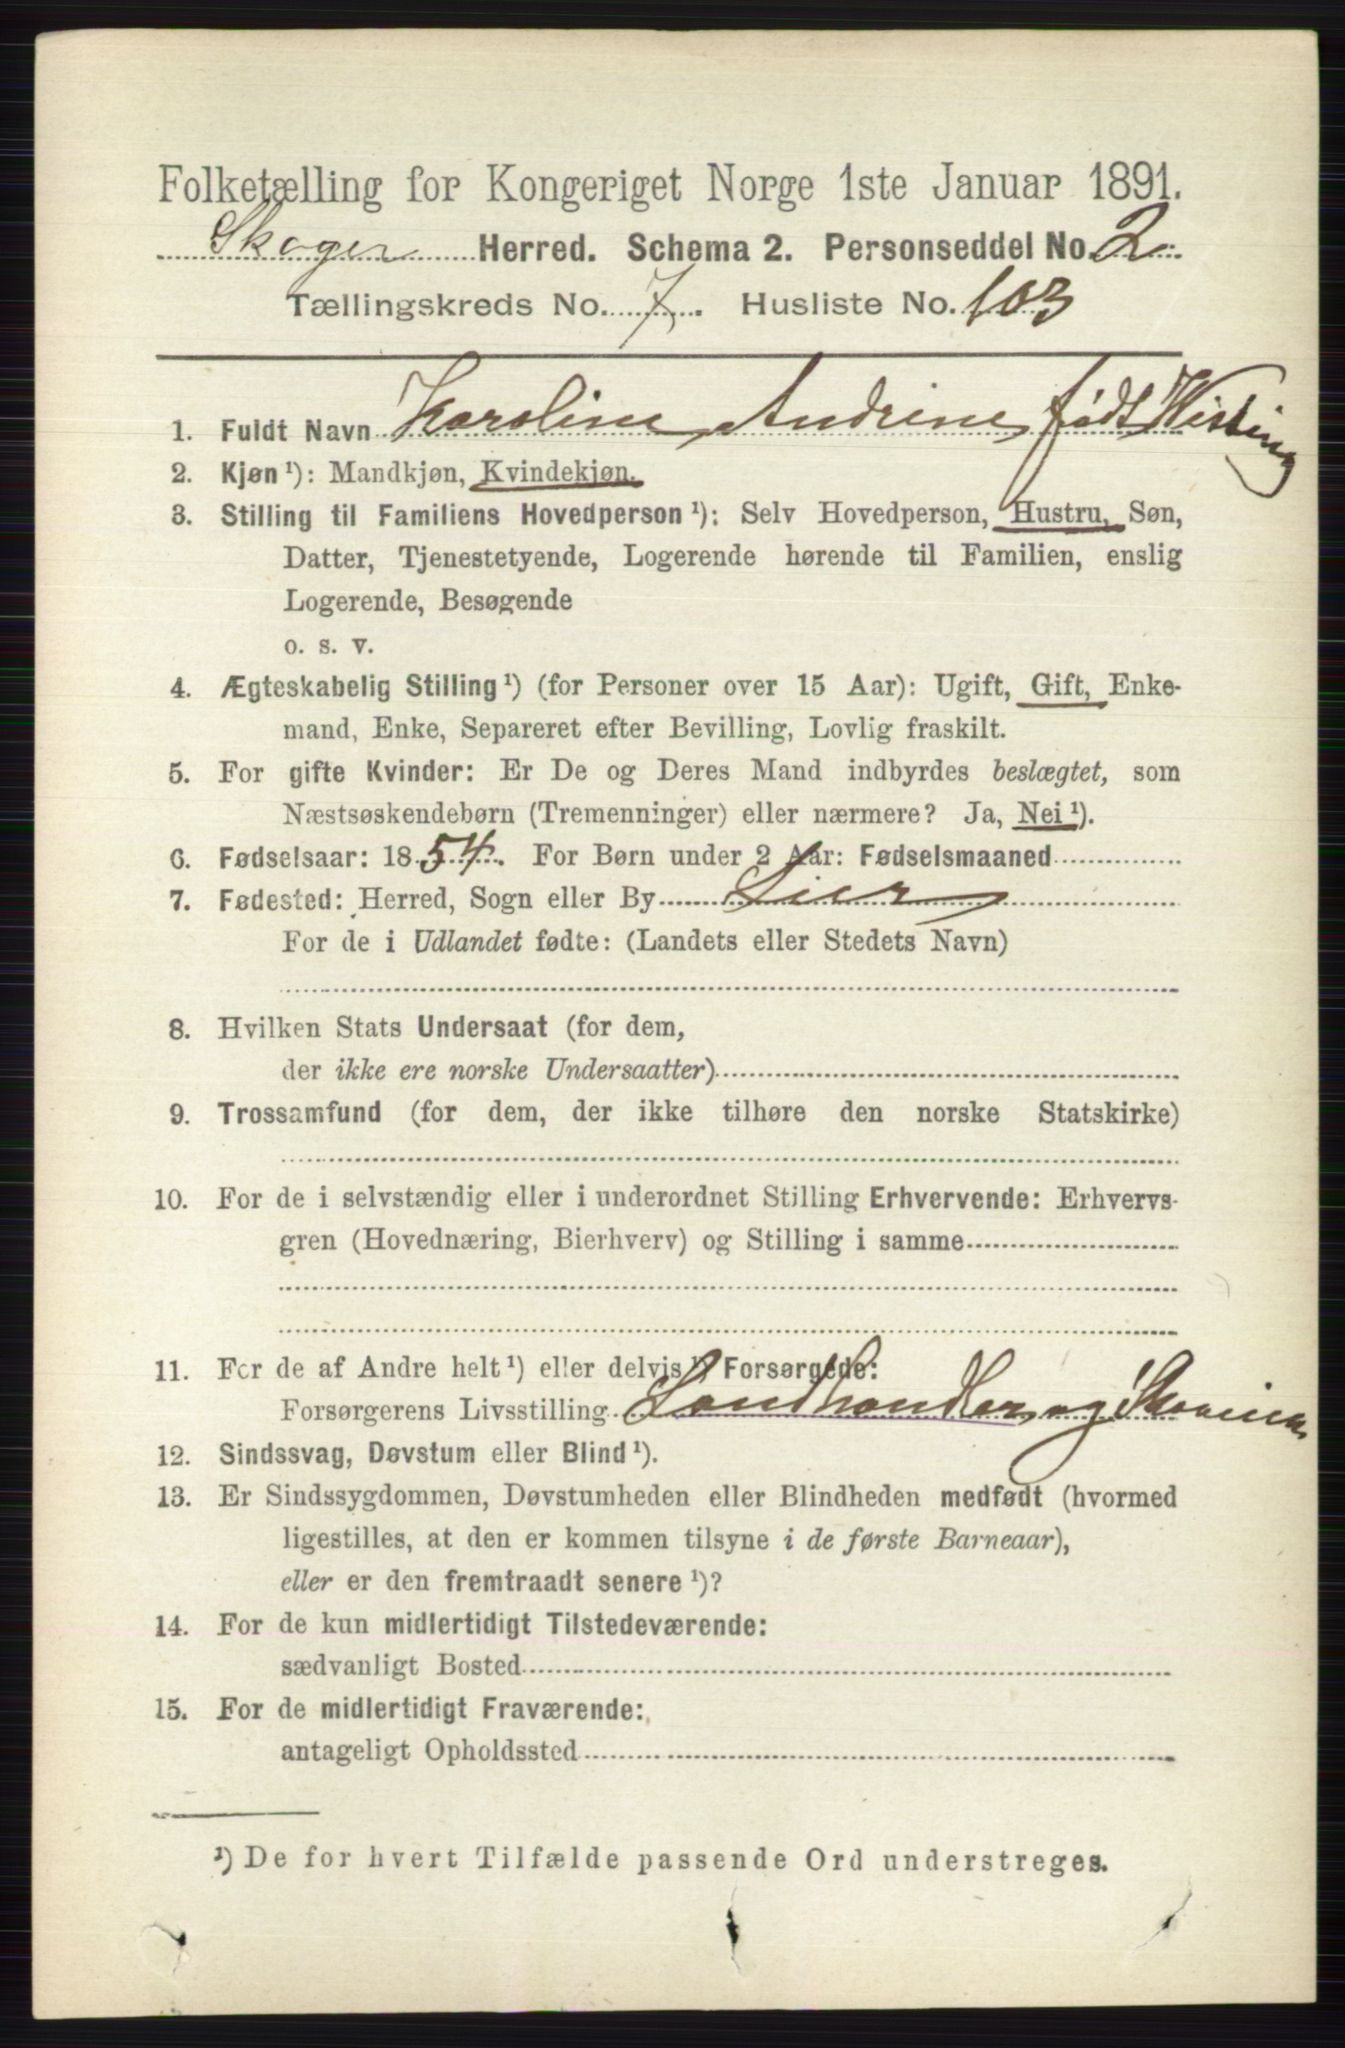 Folketælling for Kongeriget Norge 1ste Januar 1891.
Skoger Herred. Schema 2. Personseddel No. 2
Tællingskreds No. 7. Husliste No. 103
1. Fuldt Navn Karoline Andrine født Wisting
2. Kjøn¹): Mandkjøn, Kvindekjøn.
3. Stilling til Familiens Hovedperson¹): Selv Hovedperson, Hustru, Søn,
Datter, Tjenestetyende, Logerende hørende til Familien, enslig
Logerende, Besøgende
o. s. v.
4. Ægteskabelig Stilling¹) (for Personer over 15 Aar): Ugift, Gift, Enke-
mand, Enke, Separeret efter Bevilling, Lovlig fraskilt.
5. For gifte Kvinder: Er De og Deres Mand indbyrdes beslægtet, som
Næstsøskendebørn (Tremenninger) eller nærmere? Ja, Nei¹).
6. Fødselsaar: 1854. For Børn under 2 Aar: Fødselsmaaned
7. Fødested: Herred, Sogn eller By Lier
For de i Udlandet fødte: (Landets eller Stedets Navn)
8. Hvilken Stats Undersaat (for dem,
der ikke ere norske Undersaatter)
9. Trossamfund (for dem, der ikke tilhøre den norske Statskirke)
10. For de i selvstændig eller i underordnet Stilling Erhvervende: Erhvervs-
gren (Hovednæring, Bierhverv) og Stilling i samme
11. For de af Andre helt¹) eller delvis¹) Forsørgede:
Forsørgerens Livsstilling Landhandler og
12. Sindssvag, Døvstum eller Blind¹).
13. Er Sindssygdommen, Døvstumheden eller Blindheden medfødt (hvormed
ligestilles, at den er kommen tilsyne i de første Barneaar),
eller er den fremtraadt senere¹)?
14. For de kun midlertidigt Tilstedeværende:
sædvanligt Bosted
15. For de midlertidigt Fraværende:
antageligt Opholdssted
¹) De for hvert Tilfælde passende Ord understreges.